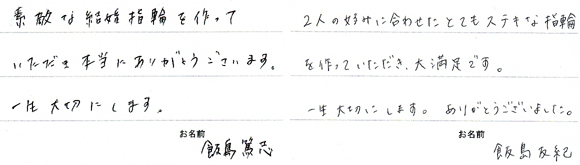 素敵な結婚指輪を作って
いただき本当にありがとうございます。
一生大切にします。
お名前
飯島篤志
2人の好みに合わせたとてもステキな指輪
を作っていただき、大満足です。
一生大切にします。ありがとうございました。
お名前
飯島友紀